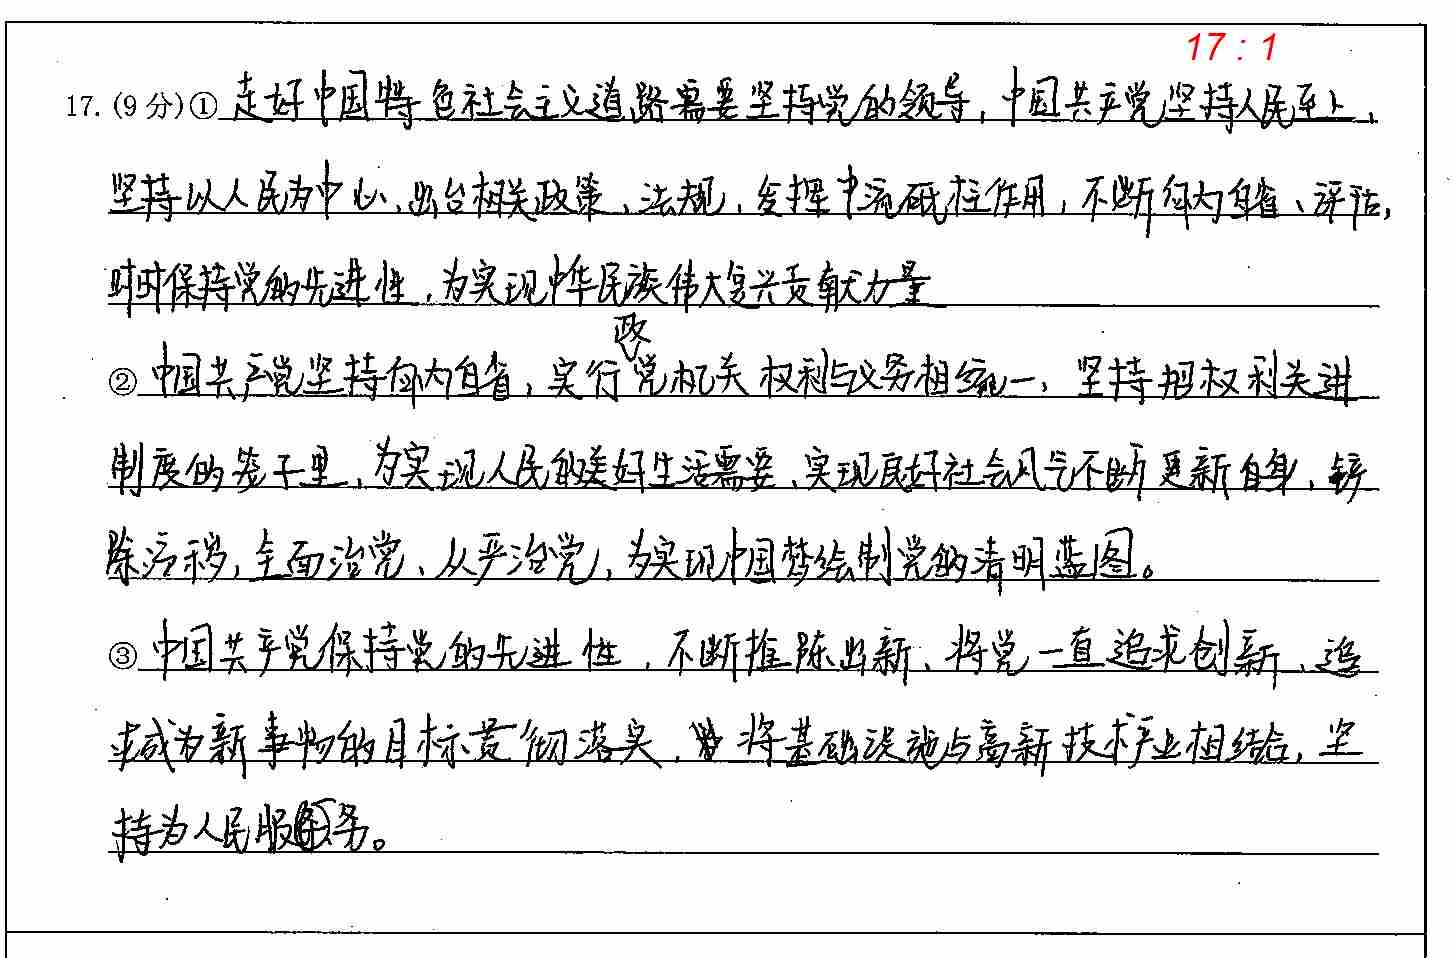 17 : 1
17. (9 分) ① 走好中国特色社会主义道路需要坚持党的领导，中国共产党坚持人民至上，
坚持以人民为中心、出台相关政策、法规，发挥中流砥柱作用，不断向内自省、评估，
时时保持党的先进性，为实现中华民族伟大复兴贡献力量
政
② 中国共产党坚持向内自省，实行党机关权利与义务相统一，坚持把权利关进
制度的笼子里，为实现人民的美好生活需要、实现良好社会风气不断更新自身、铲
除污秽，全面治党、从严治党，为实现中国梦绘制党的清明蓝图。
③ 中国共产党保持党的先进性，不断推陈出新、将党一直追求创新、追
求成为新事物的目标贯彻落实，将基础设施与高新技术产业相结合，坚
持为人民服务。